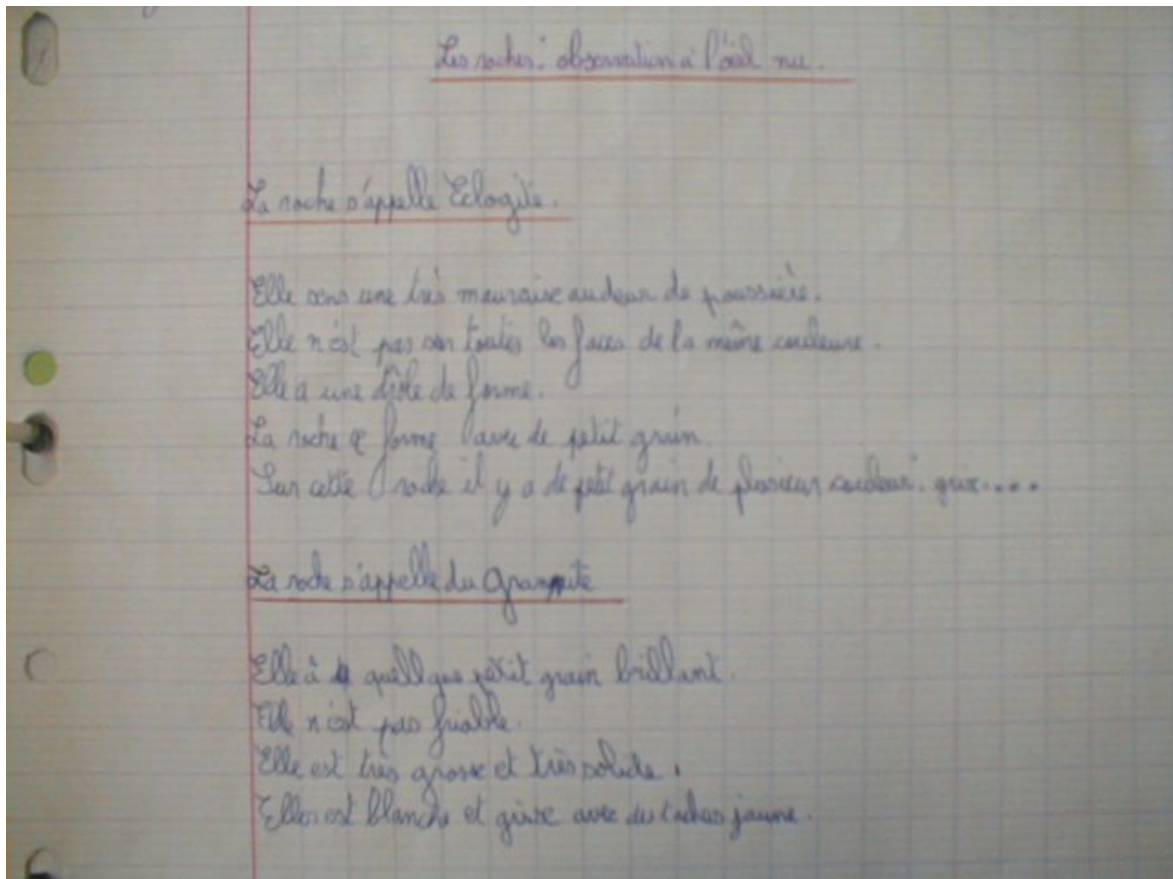 Les roches : observation à l'œil nu.
La roche s'appelle Eclogite.
Elle sens une très mauvaise audeur de poussière.
Elle n'est pas sur toutes les faces de la même couleure.
Elle a une drôle de forme.
La roche ce forme avec de petit grain.
Sur cette roche il y a de petit grain de plosieur couleur : grix....
La roche s'appelle du Granite
Elle à quellque petit grain brillant.
Elle n'est pas friable.
Elle est très grosse et très solide.
Elles est blanche et grise avec des taches jaune.